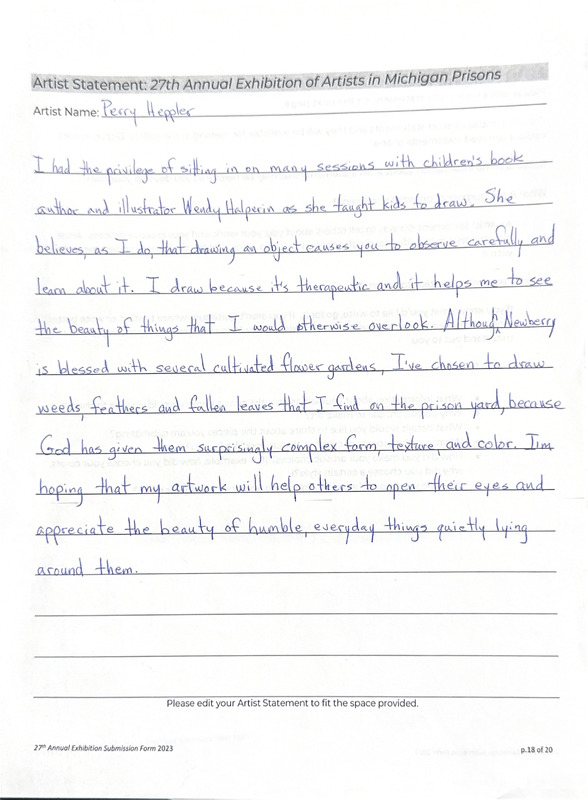 Artist Statement: 27th Annual Exhibition of Artists in Michigan Prisons
Artist Name: Perry Heppler
I had the privilege of sitting in on many sessions with children's book
author and illustrator Wendy Halperin as she taught kids to draw. She
believes, as I do, that drawing an object causes you to observe carefully and
learn about it. I draw because it's therapeutic and it helps me to see
the beauty of things that I would otherwise overlook. Although Newberry
is blessed with several cultivated flower gardens, I've chosen to draw
weeds, feathers and fallen leaves that I find on the prison yard, because
God has given them surprisingly complex form, texture, and color. I'm
hoping that my artwork will help others to open their eyes and
appreciate the beauty of humble, everyday things quietly lying
around them.
Please edit your Artist Statement to fit the space provided.
27th Annual Exhibition Submission Form 2023
p.18 of 20